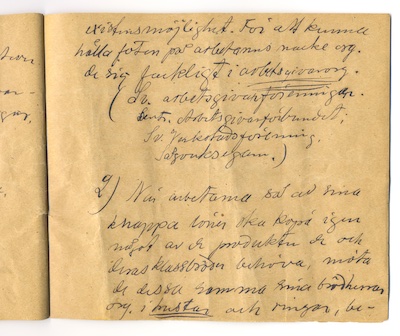 existensmöjlighet. För att kunna
hålla foten på arbetarnas nacke org.
de sig fackligt i arbetsgivareorg.
(Sv. arbetsgivarföreningen.
Centr. Arbetsgivarförbundet;
Sv. Verkstadsförening,
)
2) När arbetarna så av sina
knappa löner ska köpa igen
något av de produkter de och
deras klassbröder behöva, möta
de dessa samma sina brödherrar
org. i trustar och ringar, be-